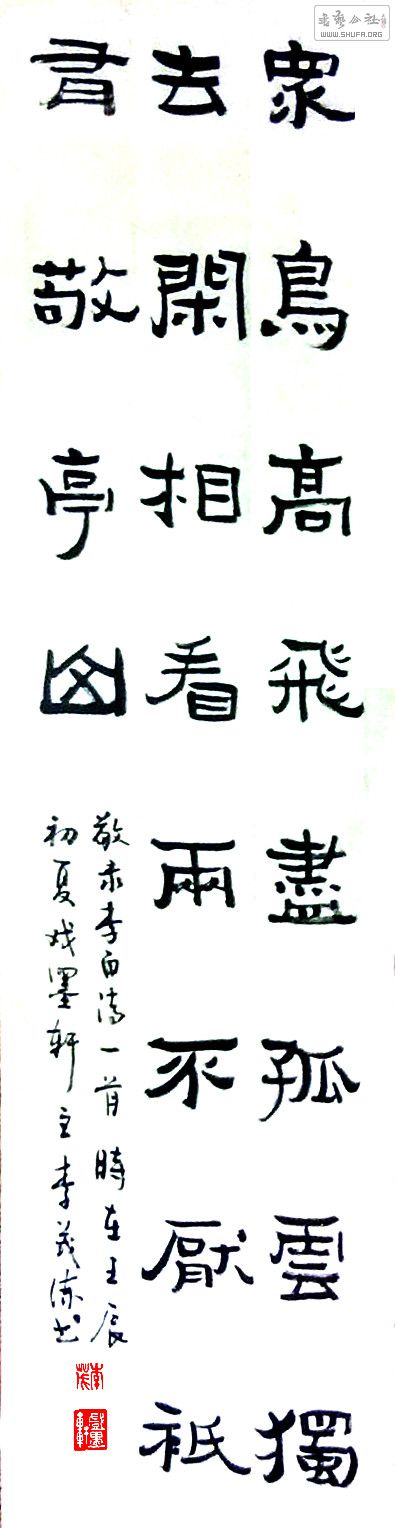 書藝公社
WWW.SHUFA.ORG
衆鳥高飛盡孤雲獨
去閑相看兩不厭祇
有敬亭山
敬录李白诗一首時在壬辰
初夏戏墨轩主李书
戲墨軒